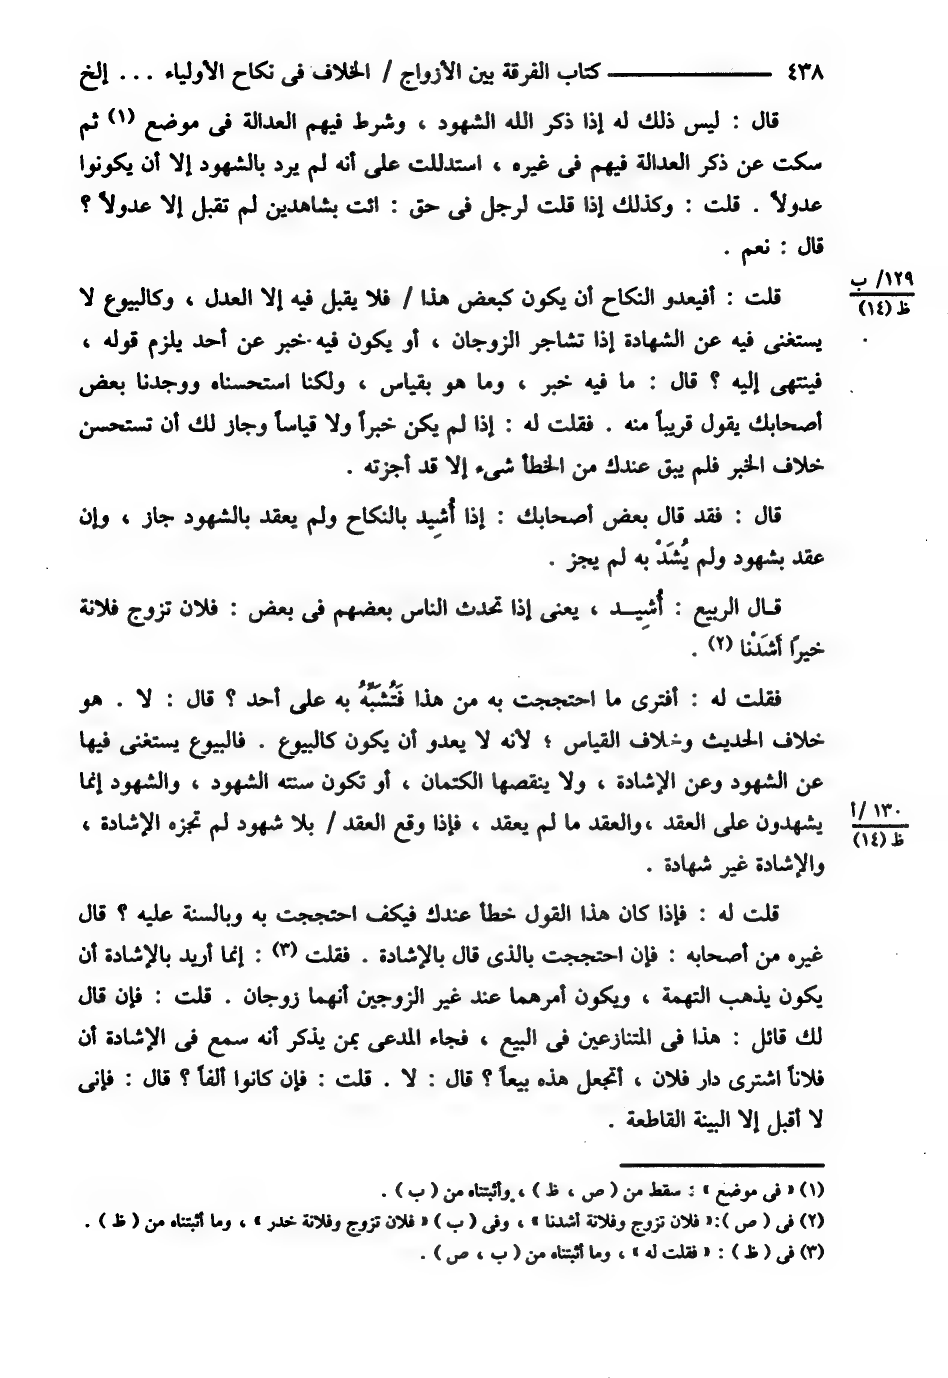 ٤٣٨ ــــــــــــــــ كتاب الفرقة بين الأزواج / الخلاف فى نكاح الأولياء ... إلخ
قال : ليس ذلك له إذا ذكر الله الشهود ، وشرط فيهم العدالة فى موضع (١) ثم
سكت عن ذكر العدالة فيهم فى غيره ، استدللت على أنه لم يرد بالشهود إلا أن يكونوا
عدولاً . قلت : وكذلك إذا قلت لرجل فى حق : ائت بشاهدين لم تقبل إلا عدولاً ؟
قال : نعم .
١٢٩/ ب
ظ (١٤)
قلت : أفيعدو النكاح أن يكون كبعض هذا / فلا يقبل فيه إلا العدل ، وكالبيوع لا
يستغنى فيه عن الشهادة إذا تشاجر الزوجان ، أو يكون فيه خبر عن أحد يلزم قوله ،
فينتهى إليه ؟ قال : ما فيه خبر ، وما هو بقياس ، ولكنا استحسناه ووجدنا بعض
أصحابك يقول قريباً منه . فقلت له : إذا لم يكن خبراً ولا قياساً وجاز لك أن تستحسن
خلاف الخبر فلم يبق عندك من الخطأ شىء إلا قد أجزته .
قال : فقد قال بعض أصحابك : إذا أُشِيد بالنكاح ولم يعقد بالشهود جاز ، وإن
عقد بشهود ولم يُشَدْ به لم يجز .
قـال الربيع : أُشِيـــد ، يعنى إذا تحدث الناس بعضهم فى بعض : فلان تزوج فلانة
خيرًا أَشَدْنا (٢) .
فقلت له : أفترى ما احتججت به من هذا فَتُشَبِّهُ به على أحد ؟ قال : لا . هو
خلاف الحديث وخلاف القياس ؛ لأنه لا يعدو أن يكون كالبيوع . فالبيوع يستغنى فيها
عن الشهود وعن الإشادة ، ولا ينقصها الكتمان ، أو تكون سنته الشهود ، والشهود إنما
يشهدون على العقد ،والعقد ما لم يعقد ، فإذا وقع العقد / بلا شهود لم تجزه الإشادة ،
١٣٠ /أ
ظ (١٤)
والإشادة غير شهادة .
قلت له : فإذا كان هذا القول خطأ عندك فيكف احتججت به وبالسنة عليه ؟ قال
غيره من أصحابه : فإن احتججت بالذى قال بالإشادة . فقلت (٣) : إنما أريد بالإشادة أن
يكون يذهب التهمة ، ويكون أمرهما عند غير الزوجين أنهما زوجان . قلت : فإن قال
لك قائل : هذا فى المتنازعين فى البيع ، فجاء المدعى بمن يذكر أنه سمع فى الإشادة أن
فلاناً اشترى دار فلان ، أتجعل هذه بيعاً ؟ قال : لا . قلت : فإن كانوا ألفاً ؟ قال : فإنى
لا أقبل إلا البينة القاطعة .
(١) « فى موضع » : سقط من ( ص ، ظ ) ، وأثبتناه من ( ب ) .
(٢) فى ( ص ):« فلان تزوج وفلانة أشدنا » ، وفى ( ب ) « فلان تزوج وفلانة خدر » ، وما أثبتناه من ( ظ ) .
(٣) فى ( ظ ) : « فقلت له » ، وما أثبتناه من ( ب ، ص ) .